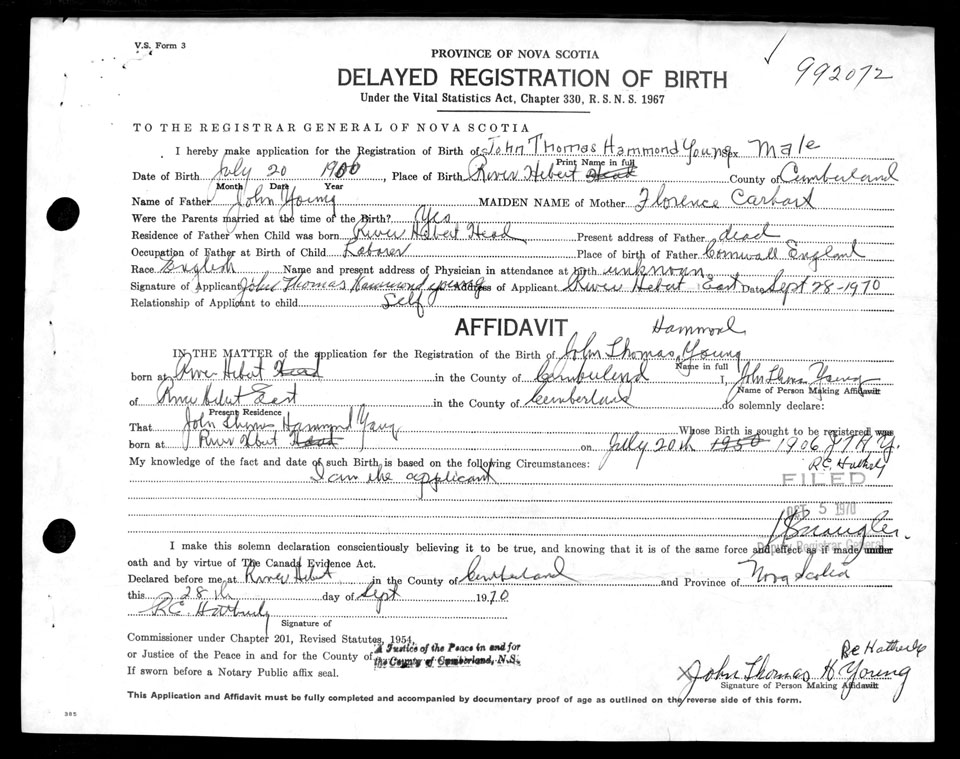 V.S. Form 3
PROVINCE OF NOVA SCOTIA
992072
DELAYED REGISTRATION OF BIRTH
Under the Vital Statistics Act, Chapter 330, R.S.N.S. 1967
TO THE REGISTRAR GENERAL OF NOVA SCOTIA
I hereby make application for the Registration of Birth of John Thomas Hammond Young Sex Male
Print Name in full
Date of Birth July 20 1906, Place of Birth River Hebert Head County of Cumberland
Month Date Year
Name of Father John Young MAIDEN NAME of Mother Florence Carhart
Were the Parents married at the time of the Birth? Yes
Residence of Father when Child was born River Hebert Head Present address of Father dead
Occupation of Father at Birth of Child Laborer Place of birth of Father Cornwall England
Race English Name and present address of Physician in attendance at birth unknown
Signature of Applicant John Thomas Hammond Young Address of Applicant River Hebert East Date Sept 28-1970
Relationship of Applicant to child Self
AFFIDAVIT
Hammond
IN THE MATTER of the application for the Registration of the Birth of John Thomas Young
Name in full
born at River Hebert Head in the County of Cumberland I, John Thomas Young
Name of Person Making Affidavit
of River Hebert East in the County of Cumberland do solemnly declare:
Present Residence
That John Thomas Hammond Young Whose Birth is sought to be registered was
born at River Hebert Head on July 20th 1950 1906 J.T.H.Y.
R.C. Hatherly
My knowledge of the fact and date of such Birth is based on the following Circumstances:
I am the applicant
FILED
OCT 5 1970
Deputy Registrar General
I make this solemn declaration conscientiously believing it to be true, and knowing that it is of the same force and effect as if made under
oath and by virtue of The Canada Evidence Act.
Declared before me at River Hebert in the County of Cumberland and Province of Nova Scotia
this 28th day of Sept 1970
R.C. Hatherly
Signature of
Commissioner under Chapter 201, Revised Statutes, 1954,
or Justice of the Peace in and for the County of
A Justice of the Peace in and for
the County of Cumberland, N.S.
If sworn before a Notary Public affix seal.
R.C. Hatherly
X John Thomas H Young
Signature of Person Making Affidavit
This Application and Affidavit must be fully completed and accompanied by documentary proof of age as outlined on the reverse side of this form.
385